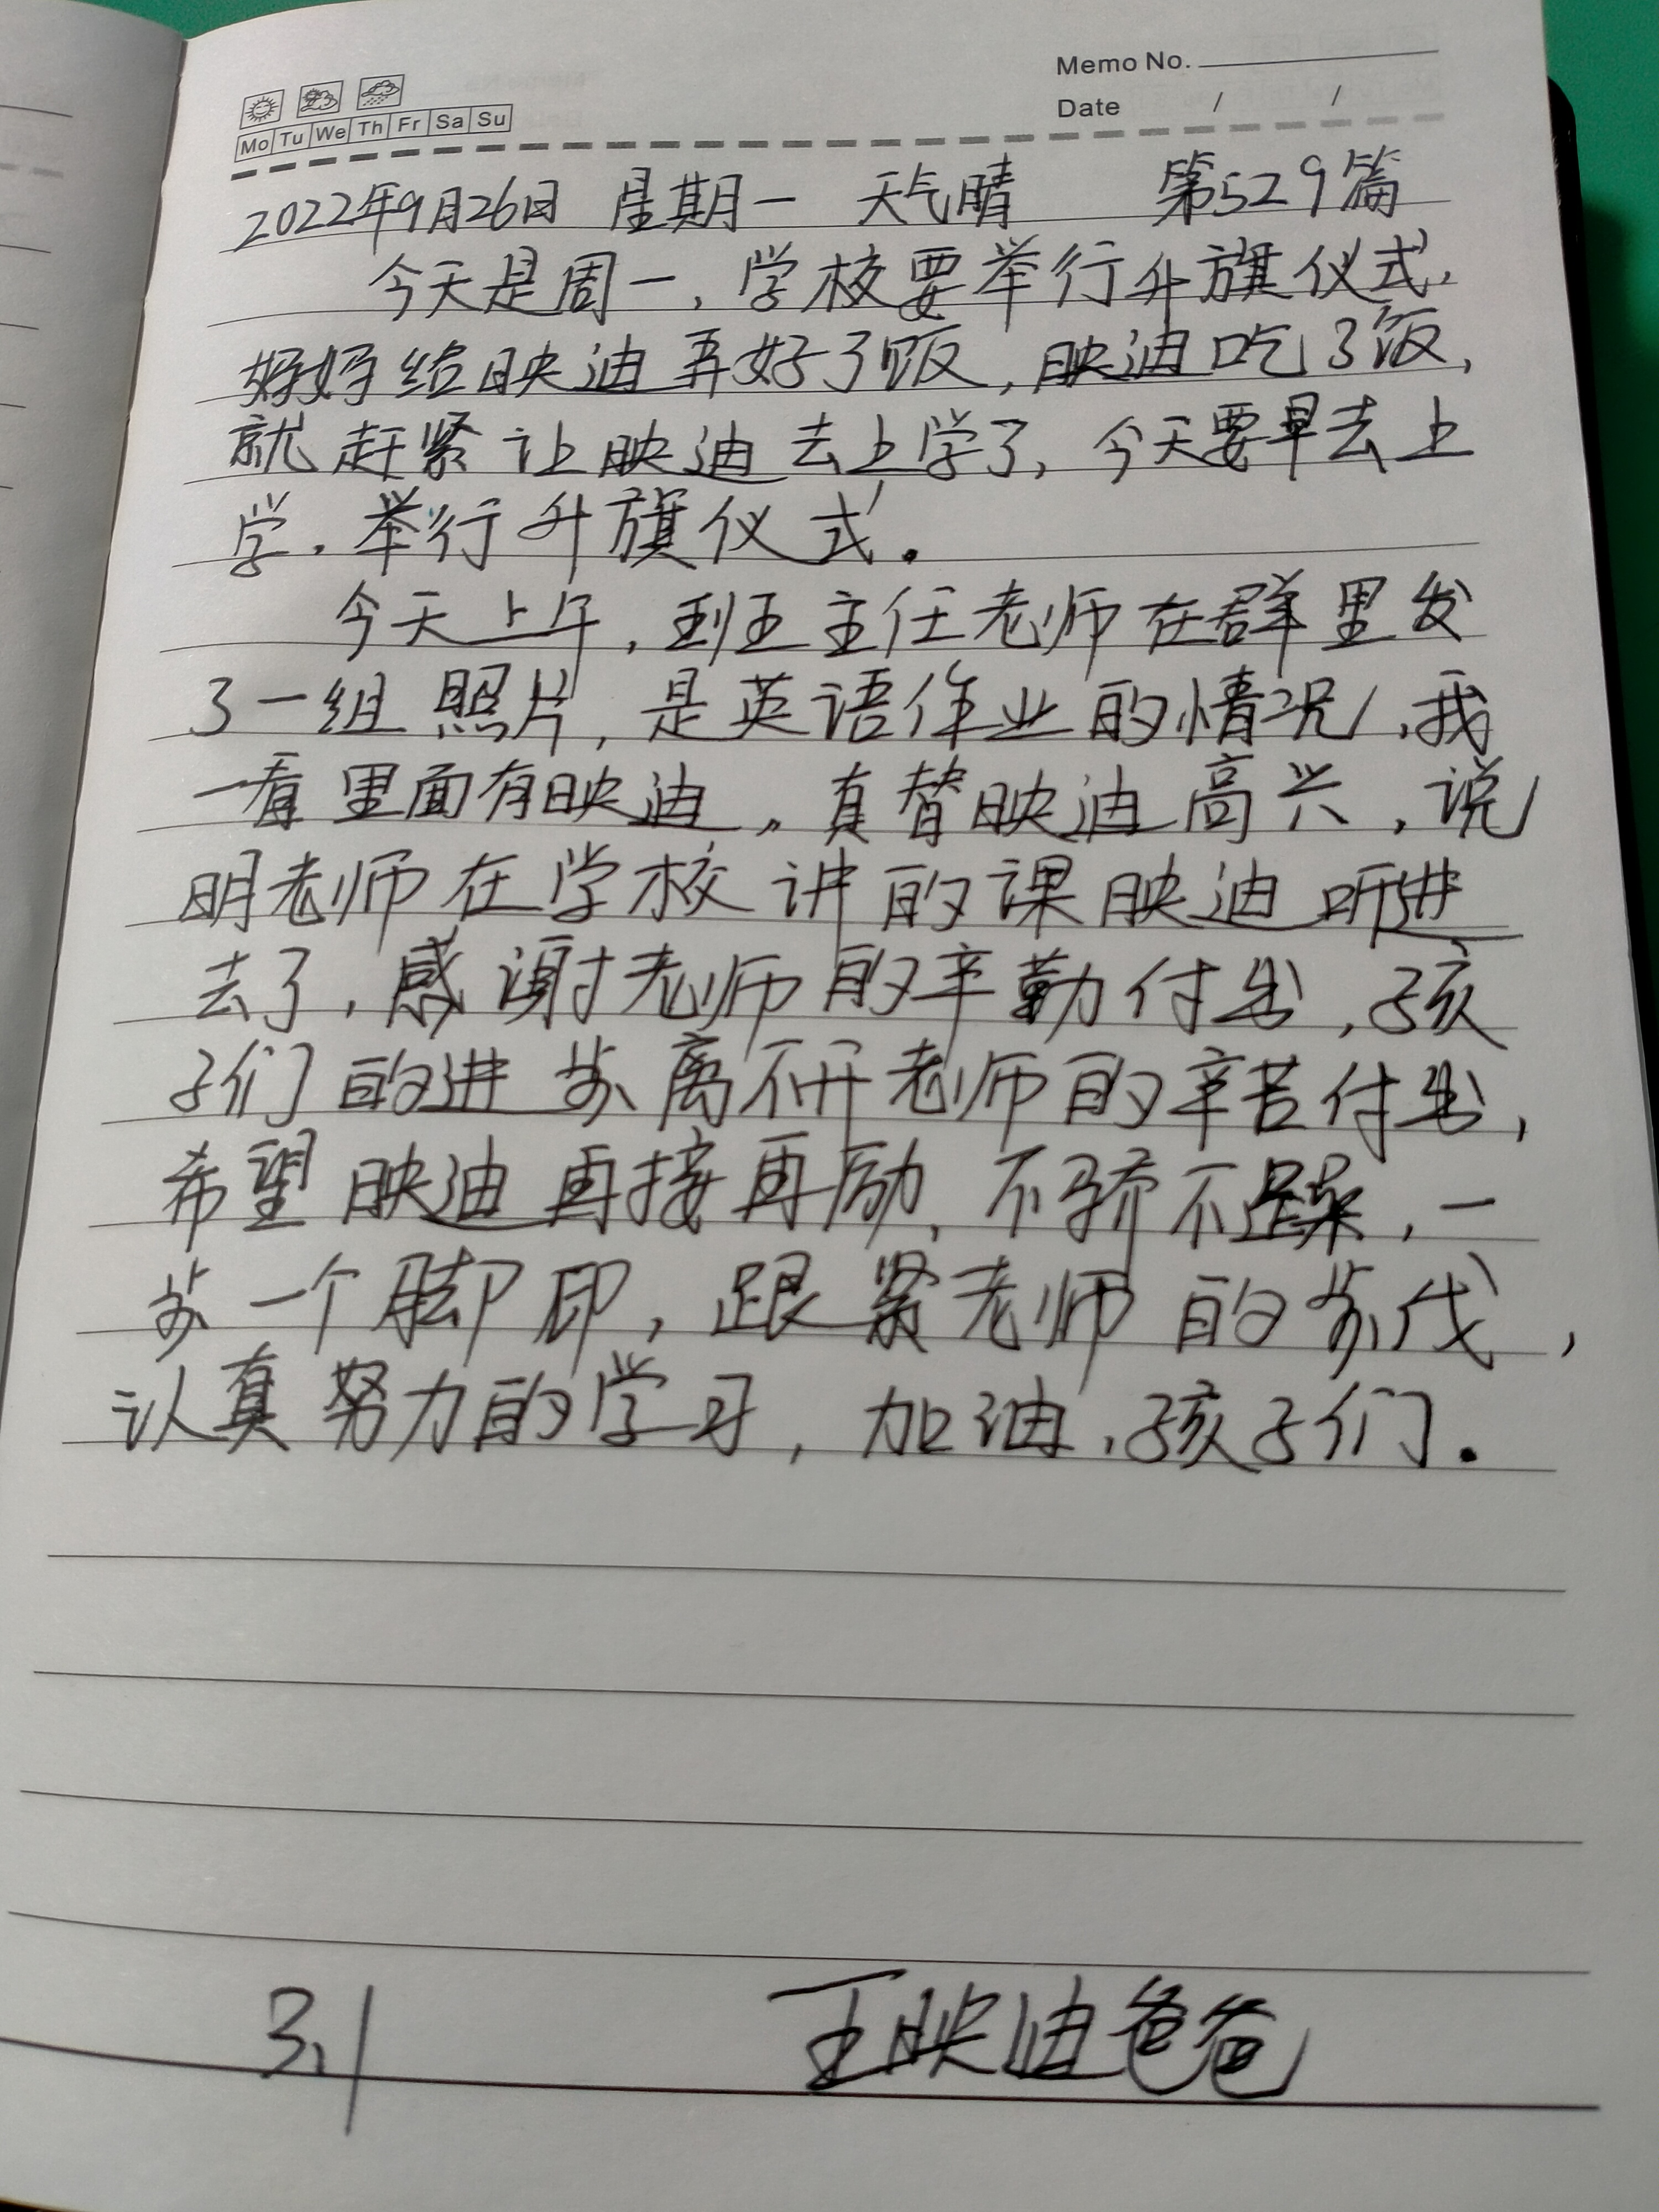 Memo No.
Mo Tu We Th Fr Sa Su
Date / /
2022年9月26日 星期一 天气晴 第529篇
今天是周一,学校要举行升旗仪式,
妈妈给映迪弄好了饭,映迪吃了饭,
就赶紧让映迪去上学了,今天要早去上
学,举行升旗仪式。
今天上午,班主任老师在群里发
了一组照片,是英语作业的情况,我
一看里面有映迪,真替映迪高兴,说
明老师在学校讲的课映迪听进
去了,感谢老师的辛勤付出,孩
子们的进步离不开老师的辛苦付出,
希望映迪再接再励,不骄不躁,一
步一个脚印,跟紧老师的步伐,
认真努力的学习,加油,孩子们。
3.1 王映迪爸爸